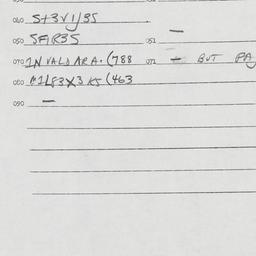 040 S+3V1/35
050 SFIR35 051 —
070 IN VALD ARA. (788 071 — BUT PA
080 (463
090 —